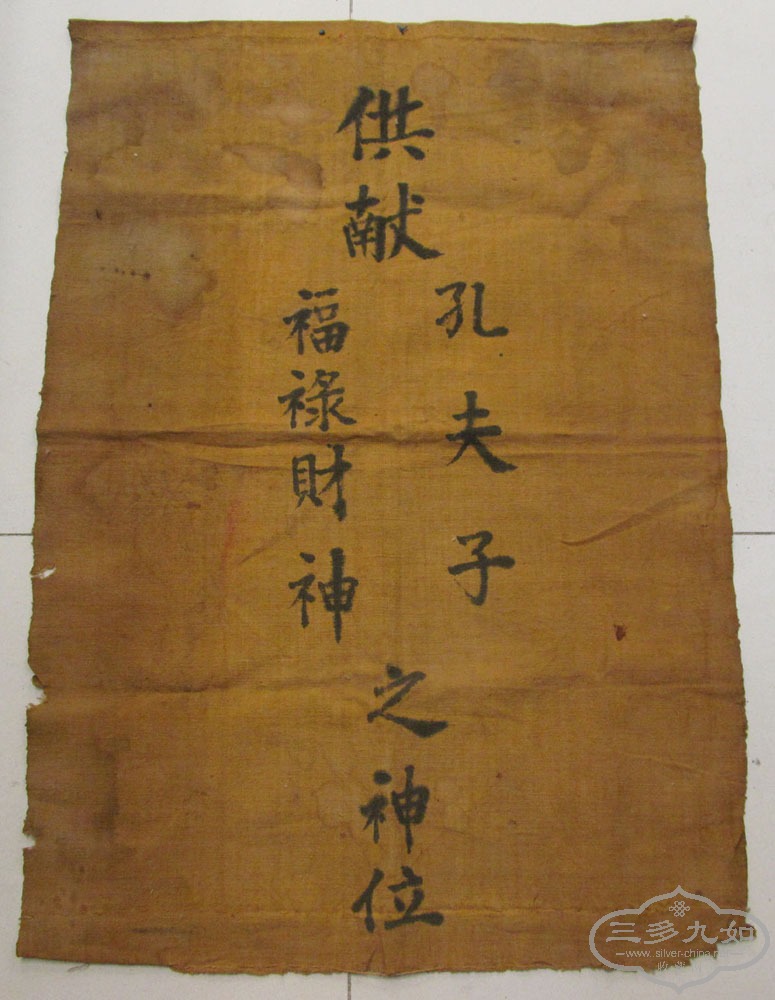 供献
孔夫子
福祿財神
之神位
三多九如
www.silver-china.
收藏